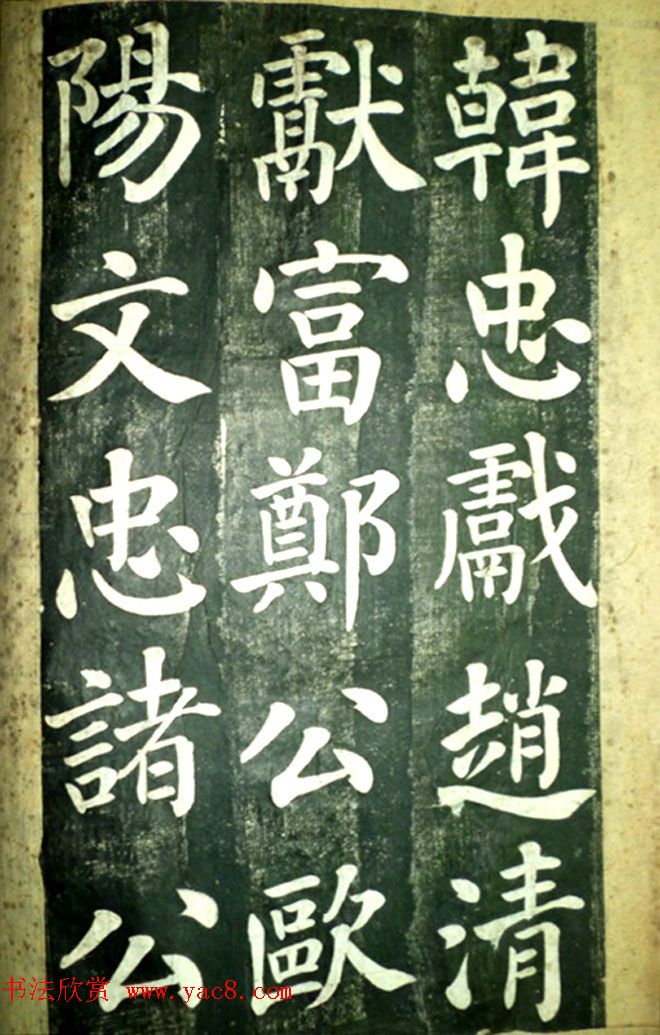 韓忠獻趙清
獻富鄭公歐
陽文忠諸公
书法欣赏 www.yac8.com